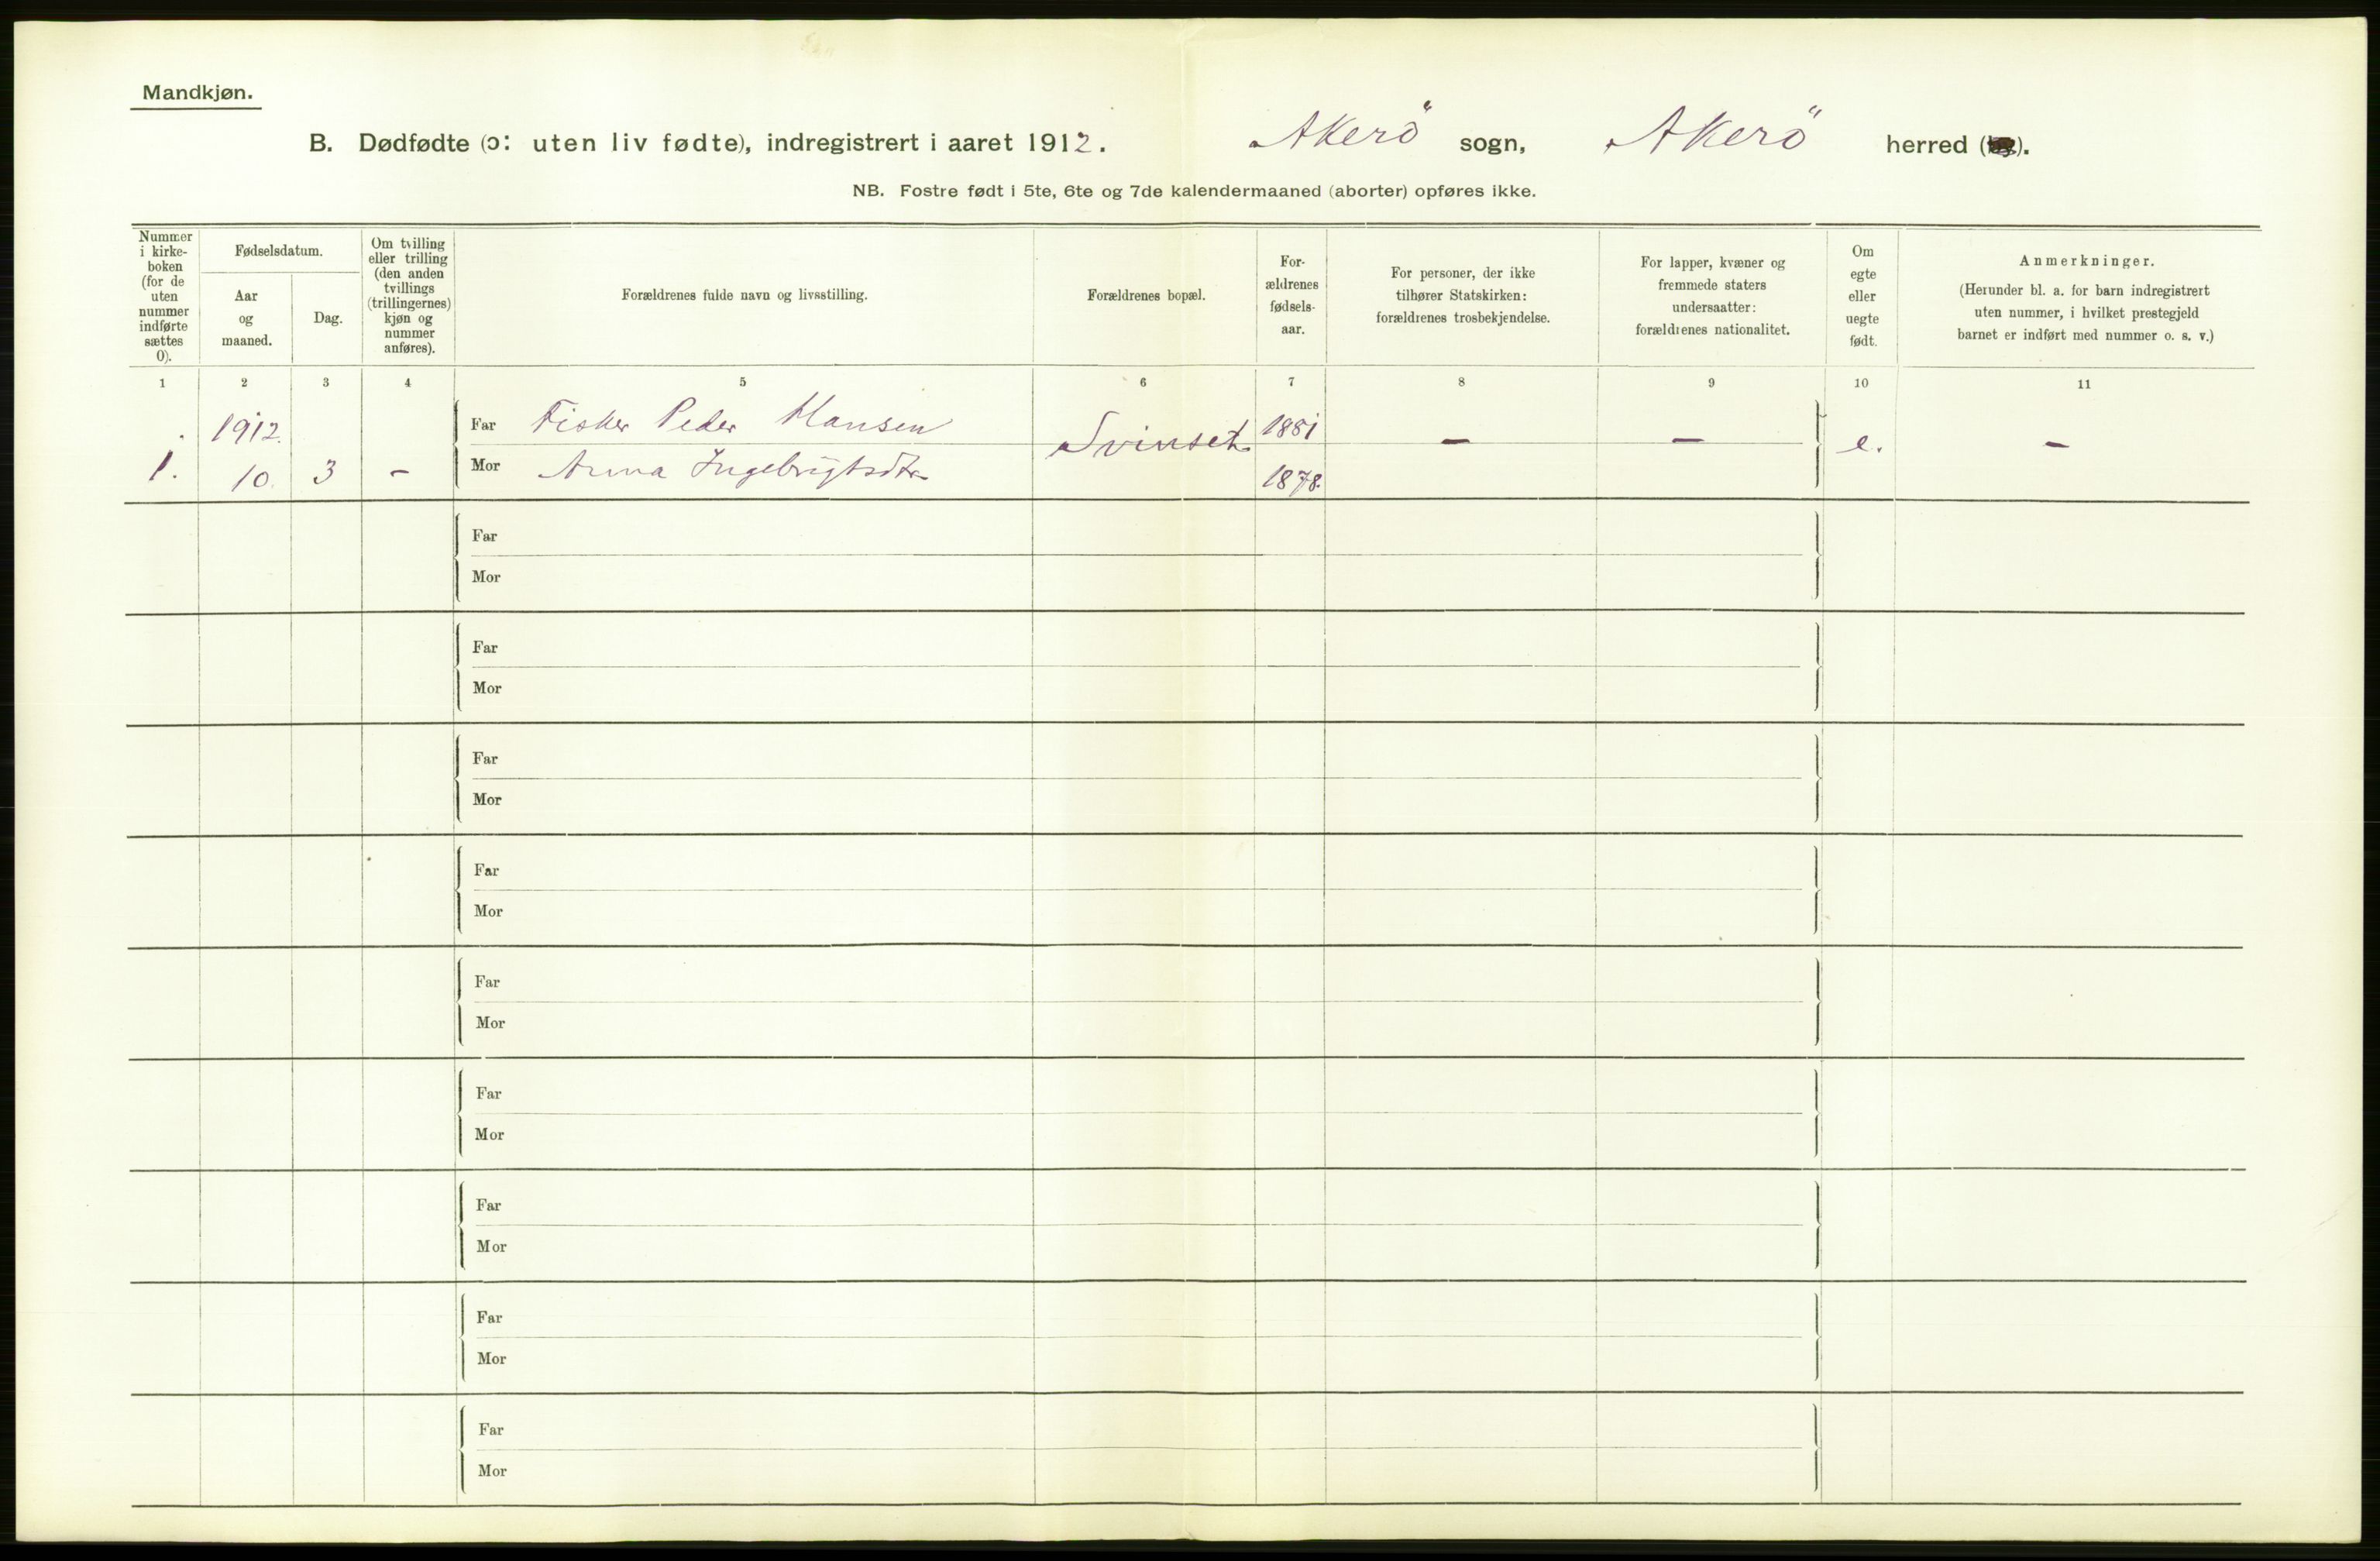 Mandkjøn.
B. Dødfødte (ɔ: uten liv fødte), indregistrert i aaret 1912. Akerö sogn, Akerö herred ( ).
NB. Fostre født i 5te, 6te og 7de kalendermaaned (aborter) opføres ikke.
Nummer
i kirke-
boken
(for de
uten
nummer
indførte
sættes
0).
Fødselsdatum.
Aar
og
maaned.
Dag.
Om tvilling
eller trilling
(den anden
tvillings
(trillingernes)
kjøn og
nummer
anføres).
Forældrenes fulde navn og livsstilling.
Forældrenes bopæl.
For-
ældrenes
fødsels-
aar.
For personer, der ikke
tilhører Statskirken:
forældrenes trosbekjendelse.
For lapper, kvæner og
fremmede staters
undersaatter:
forældrenes nationalitet.
Om
egte
eller
uegte
født.
Anmerkninger.
(Herunder bl. a. for barn indregistrert
uten nummer, i hvilket prestegjeld
barnet er indført med nummer o. s. v.)
1 2 3 4 5 6 7 8 9 10 11
1912. Far Fisker Peder Hansen Svinset. 1881 – – e. –
1. 10. 3 – Mor Anna Ingebrigtsdtr. 1878.
Far
Mor
Far
Mor
Far
Mor
Far
Mor
Far
Mor
Far
Mor
Far
Mor
Far
Mor
Far
Mor